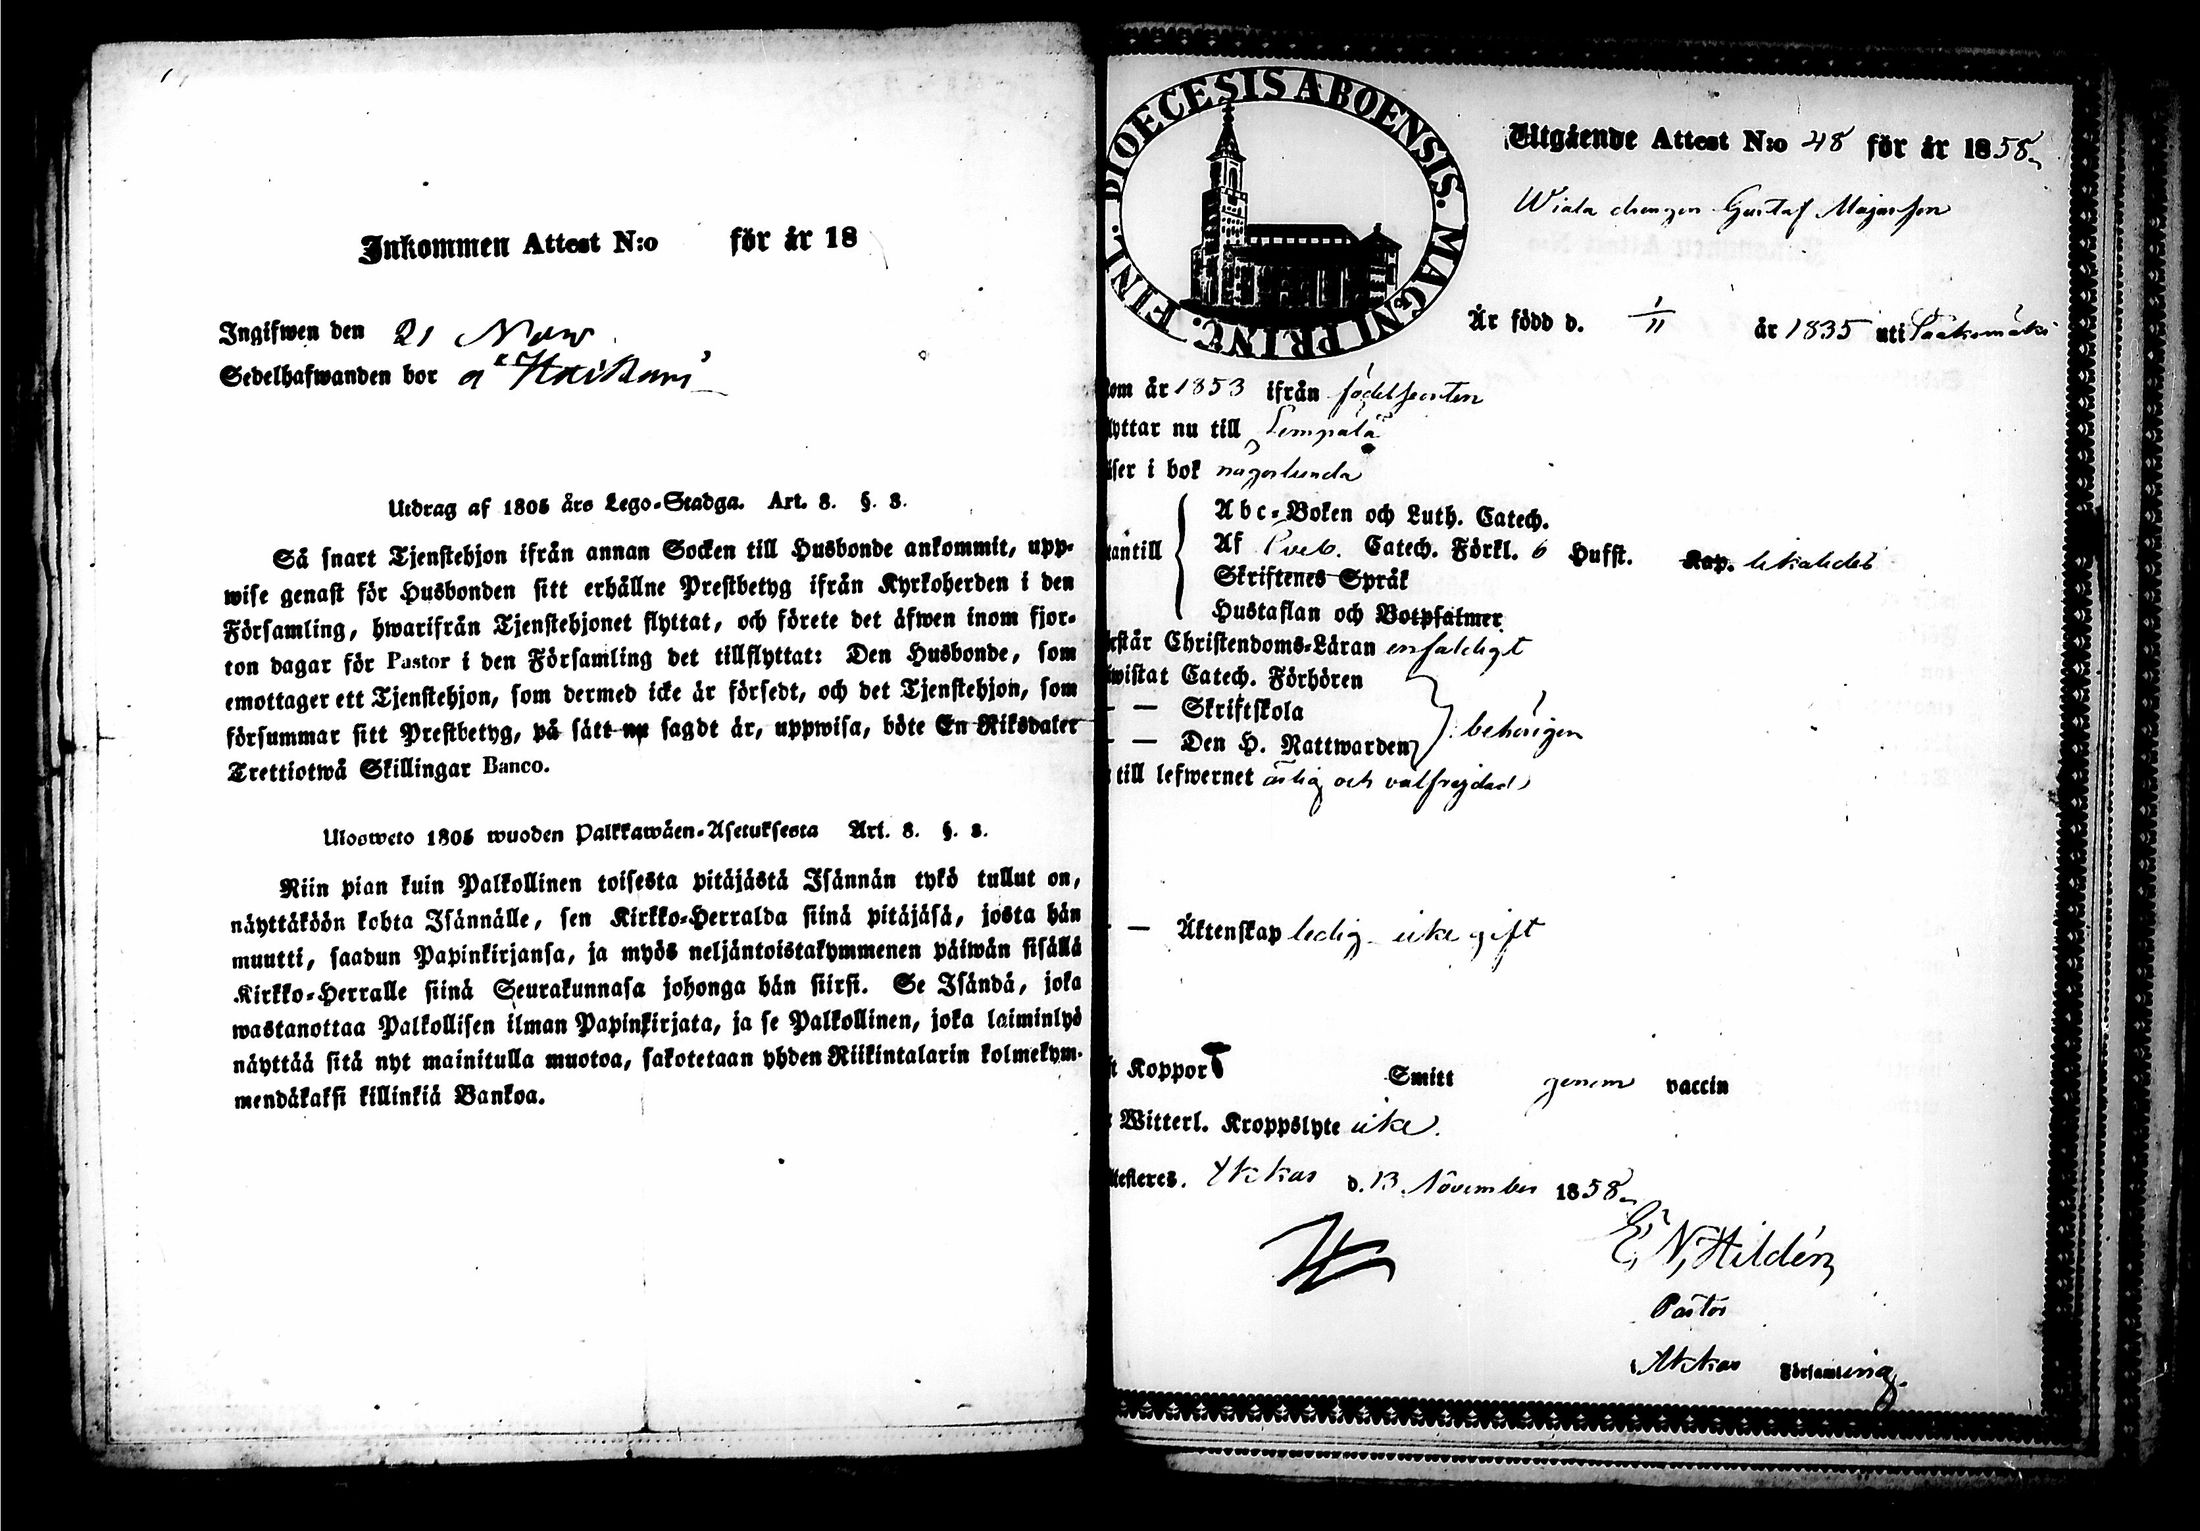 Inkommen Attest N:o för år 18
Ingifwen den 21 Nov
Sedelhafwanden bor å Haikani
Utdrag af 1805 års Lego-Stadga. Art. 8. §. 3.
Så snart Tjenstehjon ifrån annan Socken till Husbonde ankommit, upp-
wise genast för Husbonden sitt erhållne Prestbetyg ifrån Kyrkoherden i den
Församling, hwarifrån Tjenstehjonet flyttat, och förete det äfwen inom fjor-
ton dagar för Pastor i den Församling det tillflyttat: Den Husbonde, som
emottager ett Tjenstehjon, som dermed icke är försedt, och det Tjenstehjon, som
försummar sitt Prestbetyg, på sätt nu sagdt är, uppwisa, böte En Riksdaler
Trettiotwå Skillingar Banco.
Ulosweto 1805 wuoden Palkkawäen-Asetuksesta Art. 8. §. 3.
Niin pian kuin Palkollinen toisesta pitäjästä Isännän tykö tullut on,
näyttäköön kohta Isännälle, sen Kirkko-Herralda siinä pitäjäsä, josta hän
muutti, saadun Papinkirjansa, ja myös neljäntoistakymmenen päiwän sisällä
Kirkko-Herralle siinä Seurakunnasa johonga hän siirsi. Se Isändä, joka
wastanottaa Palkollisen ilman Papinkirjata, ja se Palkollinen, joka laiminlyö
näyttää sitä nyt mainitulla muotoa, sakotetaan yhden Riikintalarin kolmekym-
mendäkaksi killinkiä Bankoa.
DIOECESIS ABOENSIS. MAGNI PRINC. FINL.
Utgående Attest N:o 48 för år 1858
Wiala drengen Gustaf Majasson
Är född d. 1/11 år 1835 uti Sääksmäki
kom år 1853 ifrån födelseorten
lyttar nu till Lempälä
äser i bok någorlunda
Abc-Boken och Luth. Catech.
utantill Af Sveb. Catech. Förkl. 6 Hufst. Kap. likaledes
Skriftenes Språk
Hustaflan och Botpsalmer
rstår Christendoms-Läran enfaldigt
wistat Catech. Förhören
— — Skriftskola
— — Den H. Nattwarden behörigen
till lefwernet ärlig och välfrejdad
— — Äktenskap ledig icke gift
t Koppor Smitt genom vaccin
Witterl. Kroppslyte icke.
ttesteres. Akkas d. 13 November 1858
E. N. Hildén
Pastor
Akkas Församling.